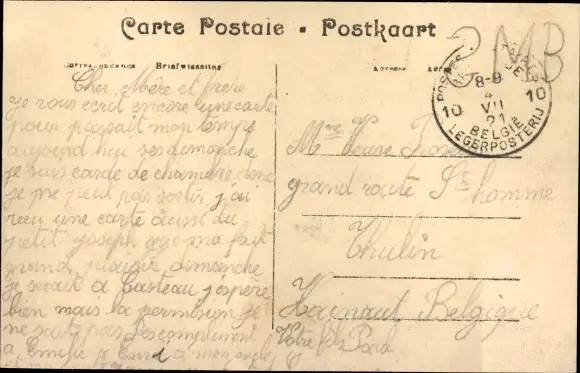 Carte Postale - Postkaart
Correspondance Briefwisseling
Adresse
SMB
POSTES
8-9
4
VII
21
10 10
BELGIË
LEGERPOSTERIJ
Cher Mère et frere
je vous ecrit encore une carte
pour passait mon temps
aujourd hui ses dimanche
je suis garde de chambre donc
je ne peut pas sortir j'ai
recu une carte aussi du
petit joseph que ma fait
grand plaisir dimanche
je serait a Casteau j'espere
bien mais la permission je
ne sait pas
a Emilie a mon oncle
Mme Veuve
grand route St homme
Thulin
Hainaut Belgique
Votre fils